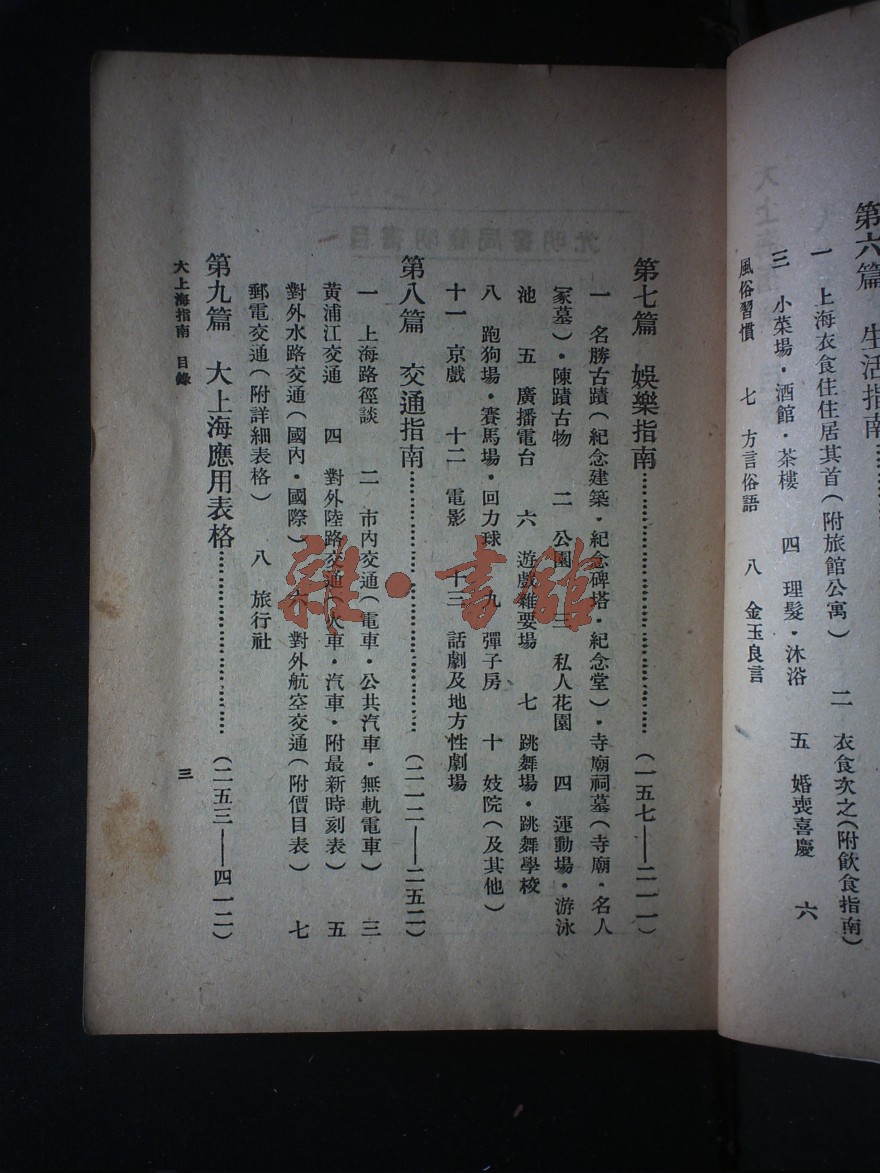 第六篇　生活指南
一　上海衣食住住居其首(附旅館公寓)　二　衣食次之(附飲食指南)
三　小菜場·酒館·茶樓　四　理髮·沐浴　五　婚喪喜慶　六
風俗習慣　七　方言俗語　八　金玉良言
第七篇　娛樂指南……(一五七——二一一)
一　名勝古蹟(紀念建築·紀念碑塔·紀念堂)·寺廟祠墓(寺廟·名人
冢墓)·陳蹟古物　二　公園　三　私人花園　四　運動場·游泳
池　五　廣播電台　六　遊戲雜耍場　七　跳舞場·跳舞學校
八　跑狗場·賽馬場·回力球　九　彈子房　十　妓院(及其他)
十一　京戲　十二　電影　十三　話劇及地方性劇場
第八篇　交通指南……(二一二——二五二)
一　上海路徑談　二　市内交通(電車·公共汽車·無軌電車)　三
黃浦江交通　四　對外陸路交通(火車·汽車·附最新時刻表)　五
對外水路交通(國內·國際)　六　對外航空交通(附價目表)　七
郵電交通(附詳細表格)　八　旅行社
第九篇　大上海應用表格……(二五三——四一二)
大上海指南　目錄
三
雜·書館